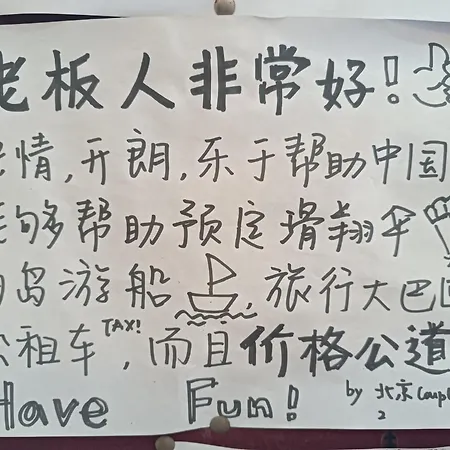 老板人非常好!
情,开朗,乐于帮助中国
能够帮助预定滑翔伞
岛游船,旅行大巴
租车TAX!,而且价格公道
Have Fun!
by 北京Couple
2